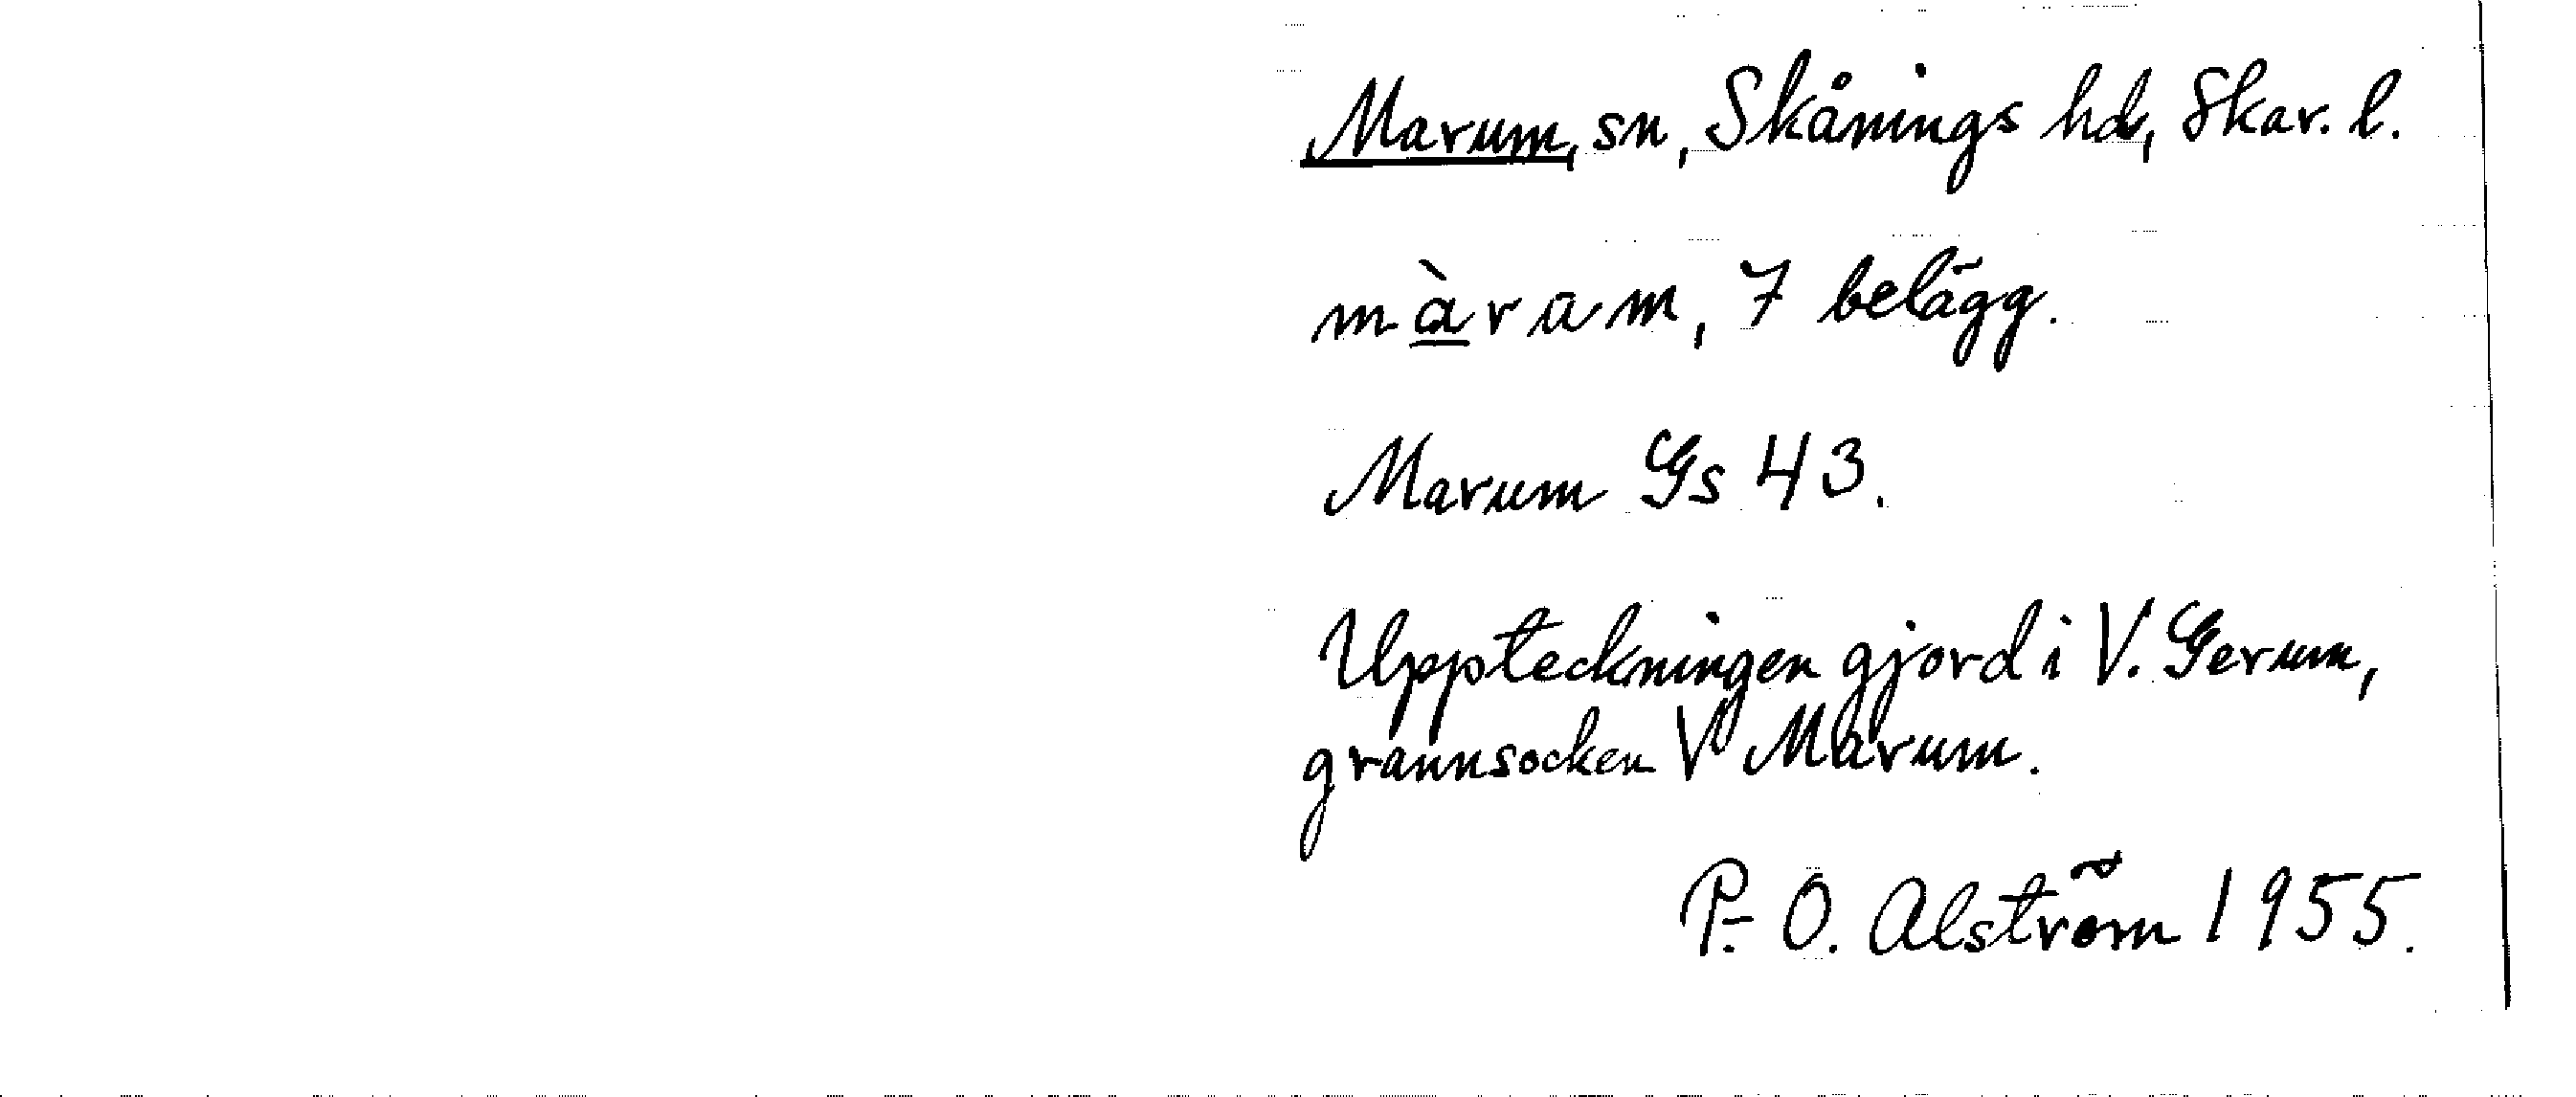 Marum, sn, Skånings hd, Skar. l.
màram, 7 belägg.
Marum Gs 43.
Uppteckningen gjord i V. Gerum,
grannsocken V Marum.
P.-O. Alström 1955.